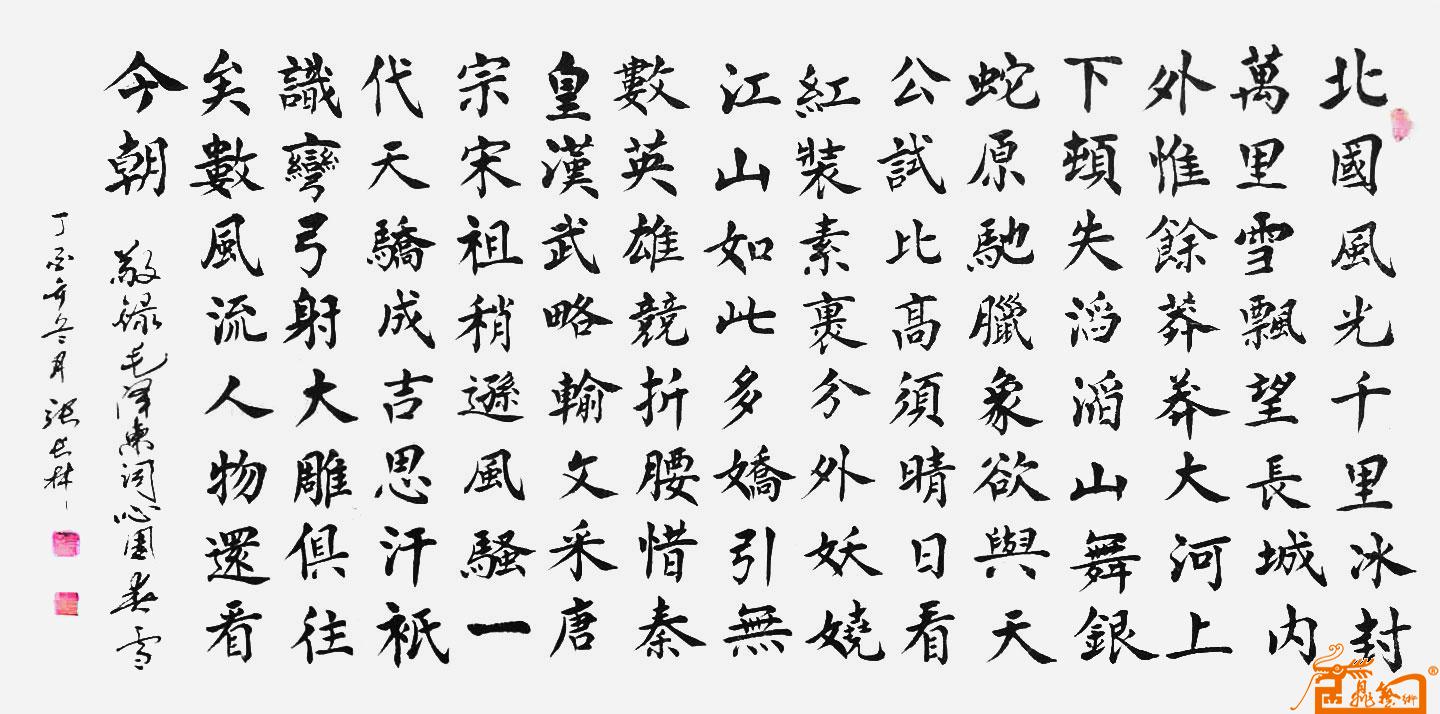 北國風光千里冰封
萬里雪飄望長城內
外惟餘莽莽大河上
下頓失滔滔山舞銀
蛇原馳臘象欲與天
公試比高須晴日看
紅裝素裹分外妖嬈
江山如此多嬌引無
數英雄競折腰惜秦
皇漢武略輸文采唐
宗宋祖稍遜風騷一
代天驕成吉思汗祇
識彎弓射大雕俱往
矣數風流人物還看
今朝
敬錄毛澤東詞沁園春雪
丁酉年冬月張長林